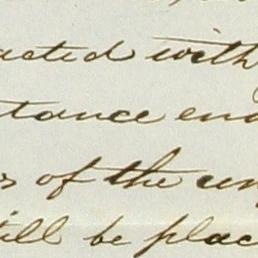 acted with
tance en
s of the un
ill be plac